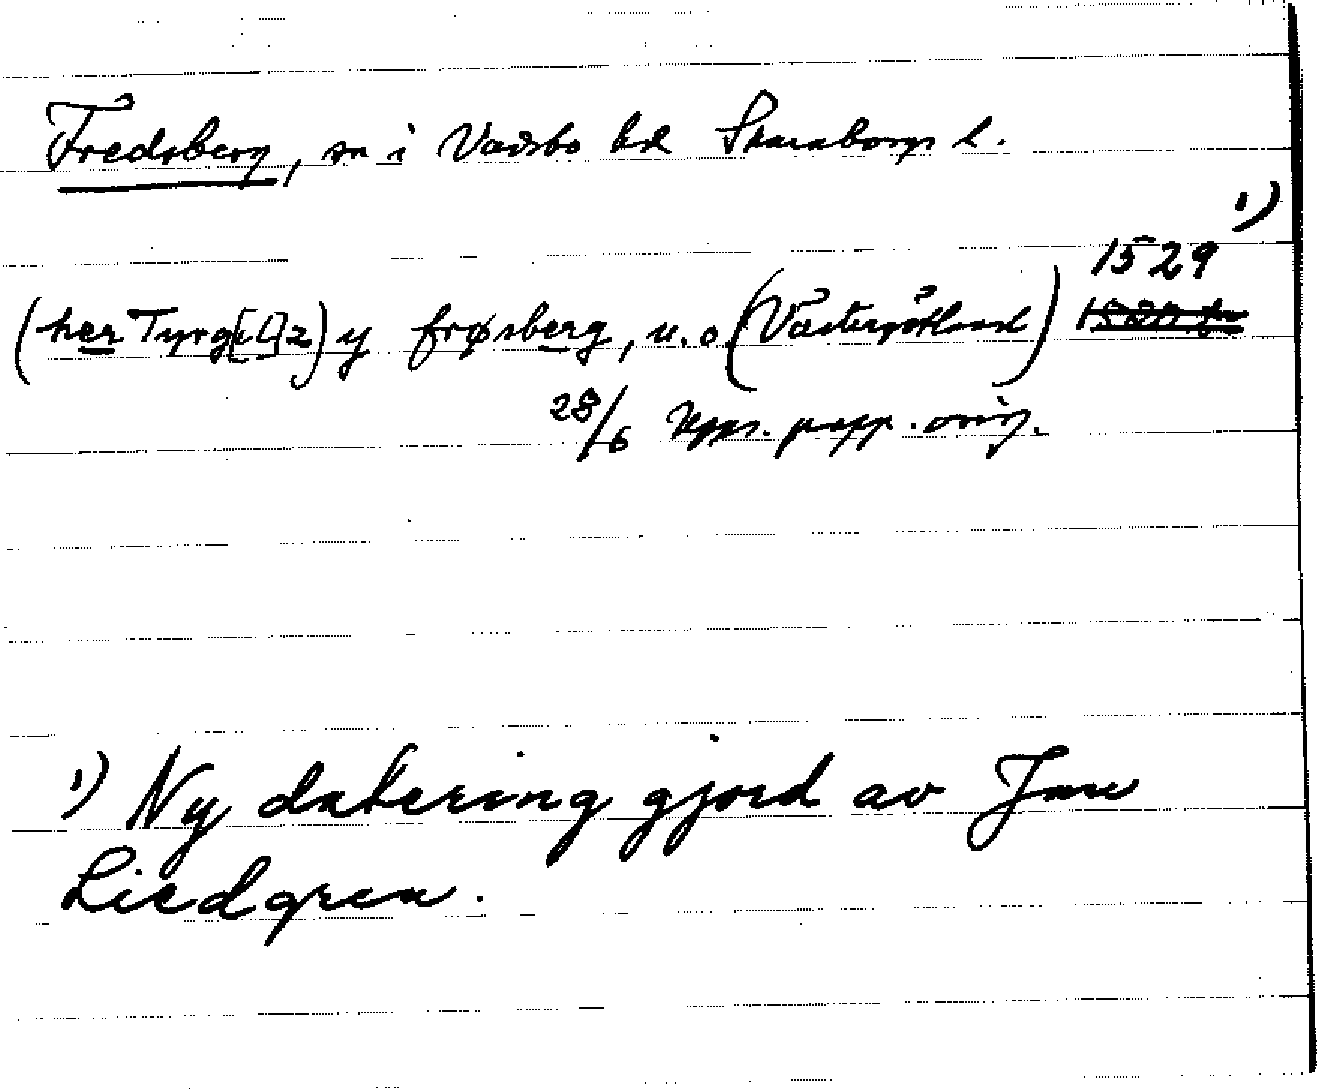 Fredsberg, sn i Vadsbo hd Skaraborgs l.
1)
1529
(her Tyrg[il]z) y frøsberg, u.o. (Västergötland)
28/6 Upps. papp. orig.
1) Ny datering gjord av Jan
Liedgren.